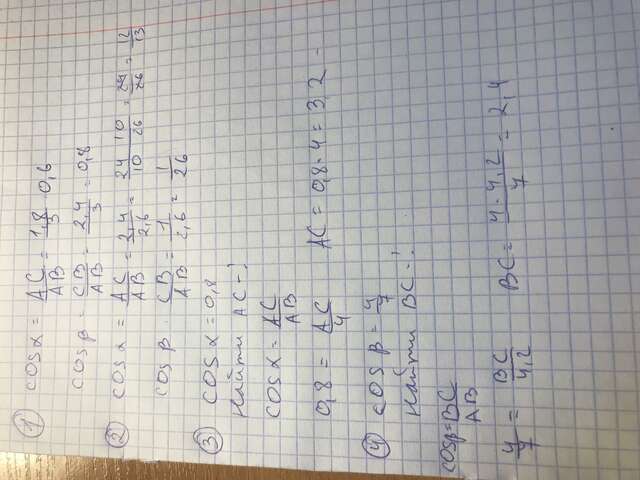 ① cosα = AC/AB = 1,8/3 = 0,6
cosβ = CB/AB = 2,4/3 = 0,8
② cosα = AC/AB = 2,4/2,6 = 24/10 10/26 = 24/26 = 12/13
cosβ = CB/AB = 1/2,6 = 1/26
③ cosα = 0,8
Найти AC-?
cosα = AC/AB
0,8 = AC/4 AC = 0,8·4 = 3,2
④ cosβ = 4/7
Найти BC-?
cosβ = BC/AB
4/7 = BC/4,2 BC = 4·4,2/7 = 2,4